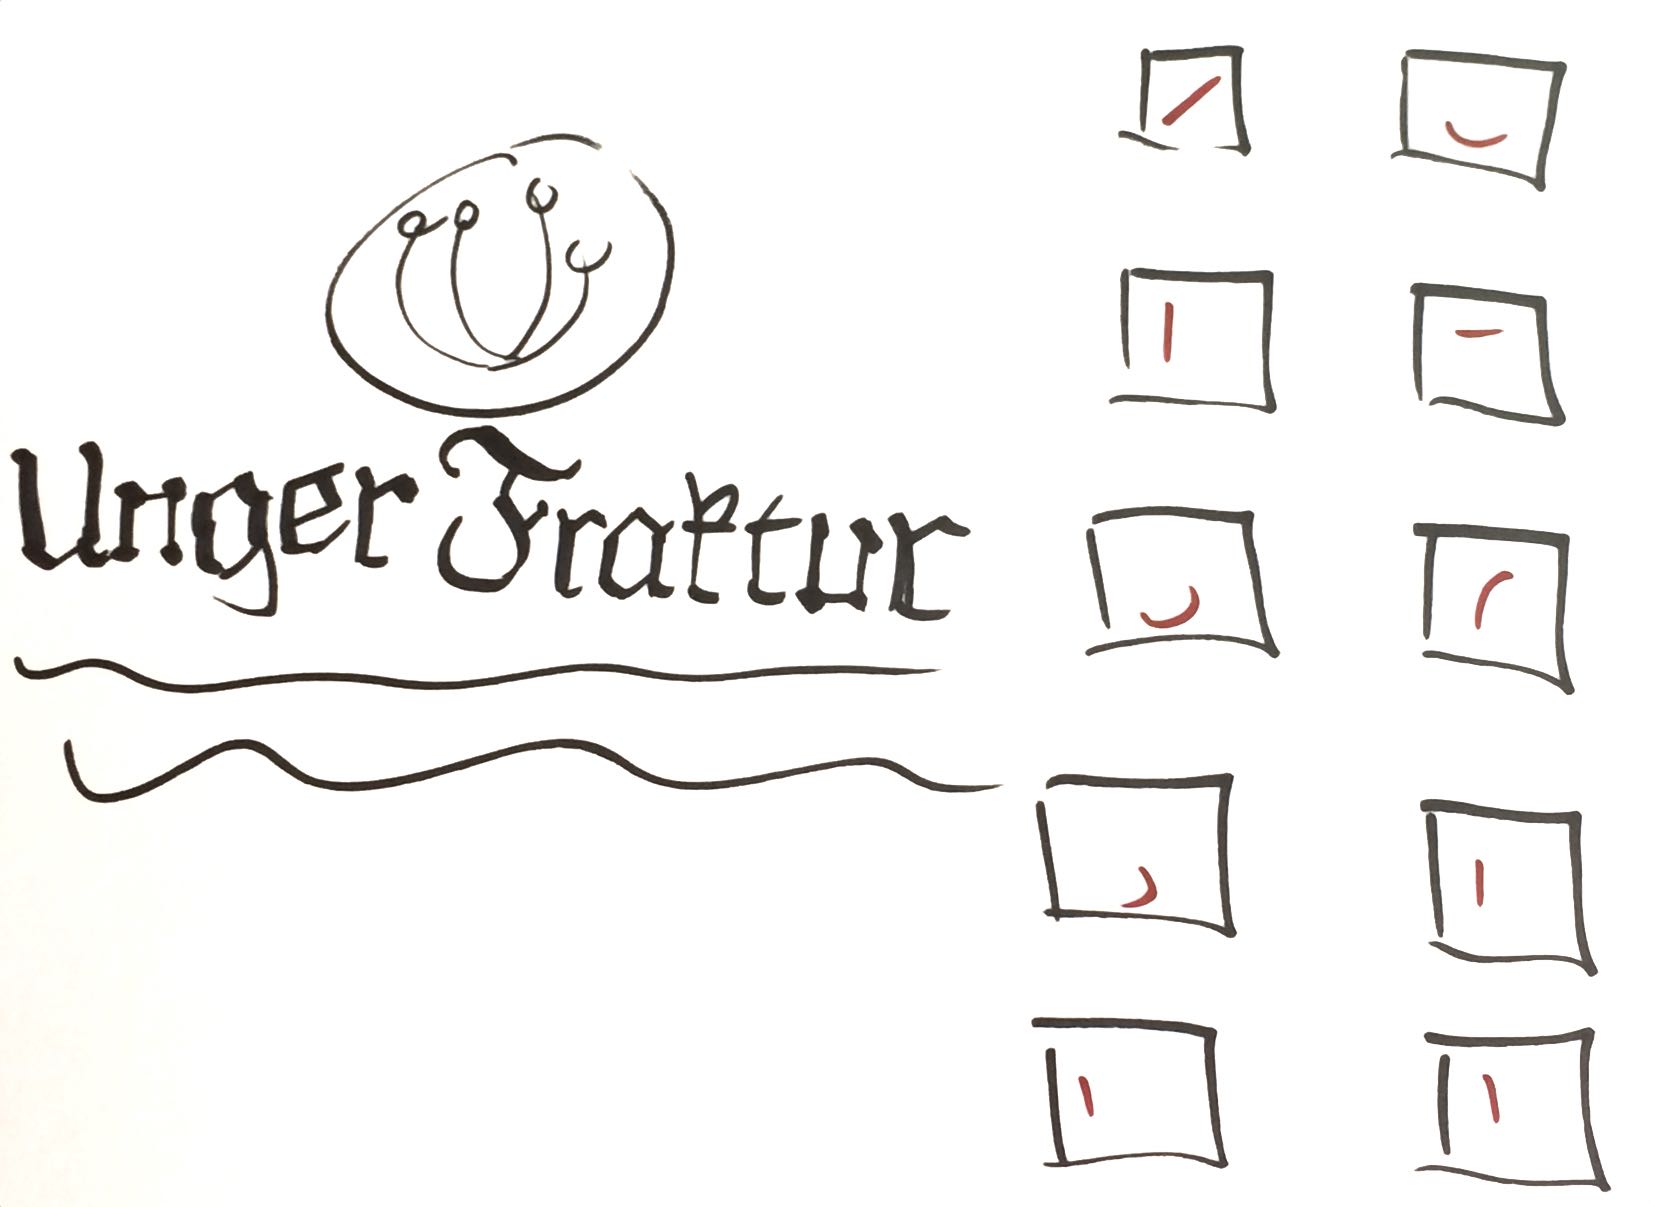 Unger Fraktur